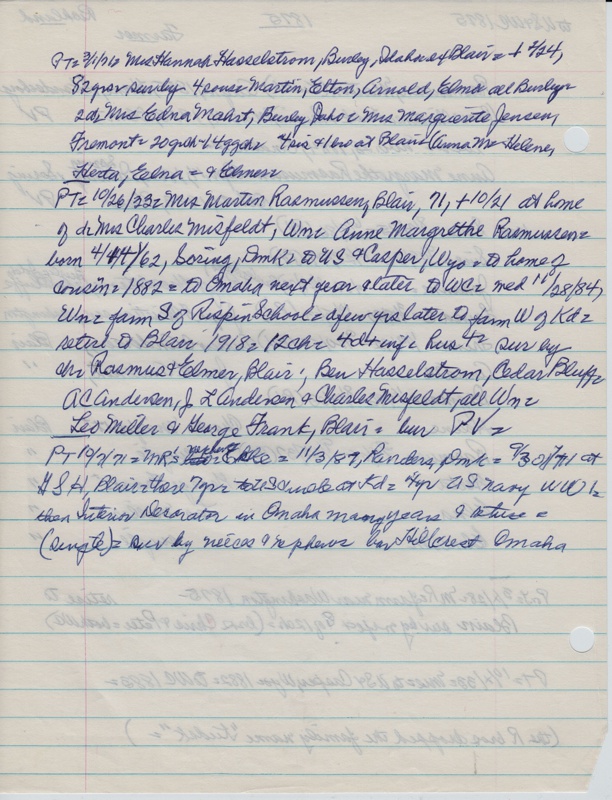 PT= 3/1/76 Mrs Hannah Hasselstrom, Burley, Idaho ex Blair = + 2/24,
82 yrs = surv by 4 sons = Martin, Elton, Arnold, Elmer all Burley =
2 d, Mrs Edna Mahrt, Burley Idaho & Mrs Marguerite Jensen,
Fremont = 20 gch - 14 ggch = 4 sis & 1 bro at Blair (Anna M = Helene,
Herta, Edna = & Elmer
PT= 10/26/33 = Mrs Martin Rasmussen, Blair, 71, + 10/21 at home
of d. Mrs Charles Misfeldt, Wn = Anne Margrethe Rasmussen =
born 4/14/62, Soring, Dmk = to US & Casper, Wyo = to home of
cousin = 1882 = to Omaha next year & later to WC = med 11/28/84,
Wn = farm S of Rispin School = a few yrs later to farm W of Kd =
retire to Blair 1918 = 12 ch = 4 d + inf = hus + = surv by
ch: Rasmus & Elmer, Blair; Ben Hasselstrom, Cedar Bluffs
AC Andersen, J L Andersen & Charles Misfeldt, all Wn =
Leo Miller & George Frank, Blair = bur PV =
PT 10/7/71 = MR's nephew = = 11/3/87, Randers, Dmk = 9/30/71 at
GSH, Blair = there 7 yr = to US made at Kd = 4 yr US Navy WW I =
then Interior Decorator in Omaha many years & retire =
(single) = surv by neices & nephews bur Hillcrest Omaha